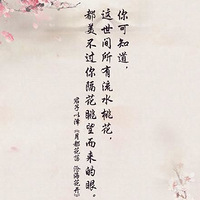 你可知道，
这世间所有流水桃花，
都美不过你隔花眺望而来的眼。
君子以泽《月都花落，沧海花开》